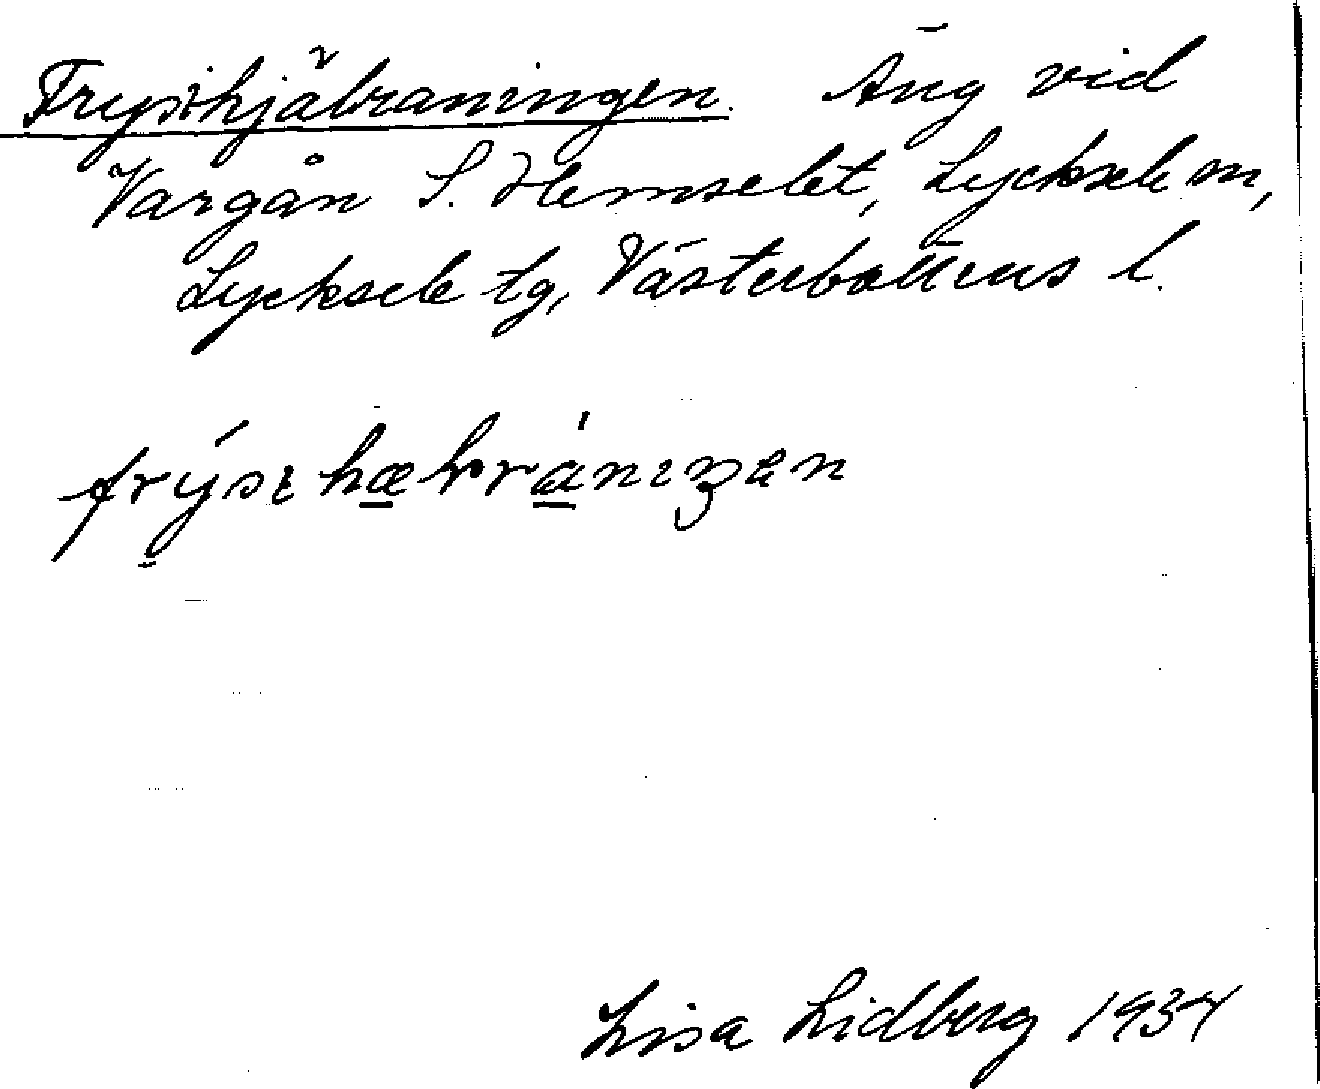 Frysihjälraningen. Äng vid
Vargån S. Hemselet, Lycksele sn,
Lycksele tg, Västerbottens l.
Lisa Lidberg 1934